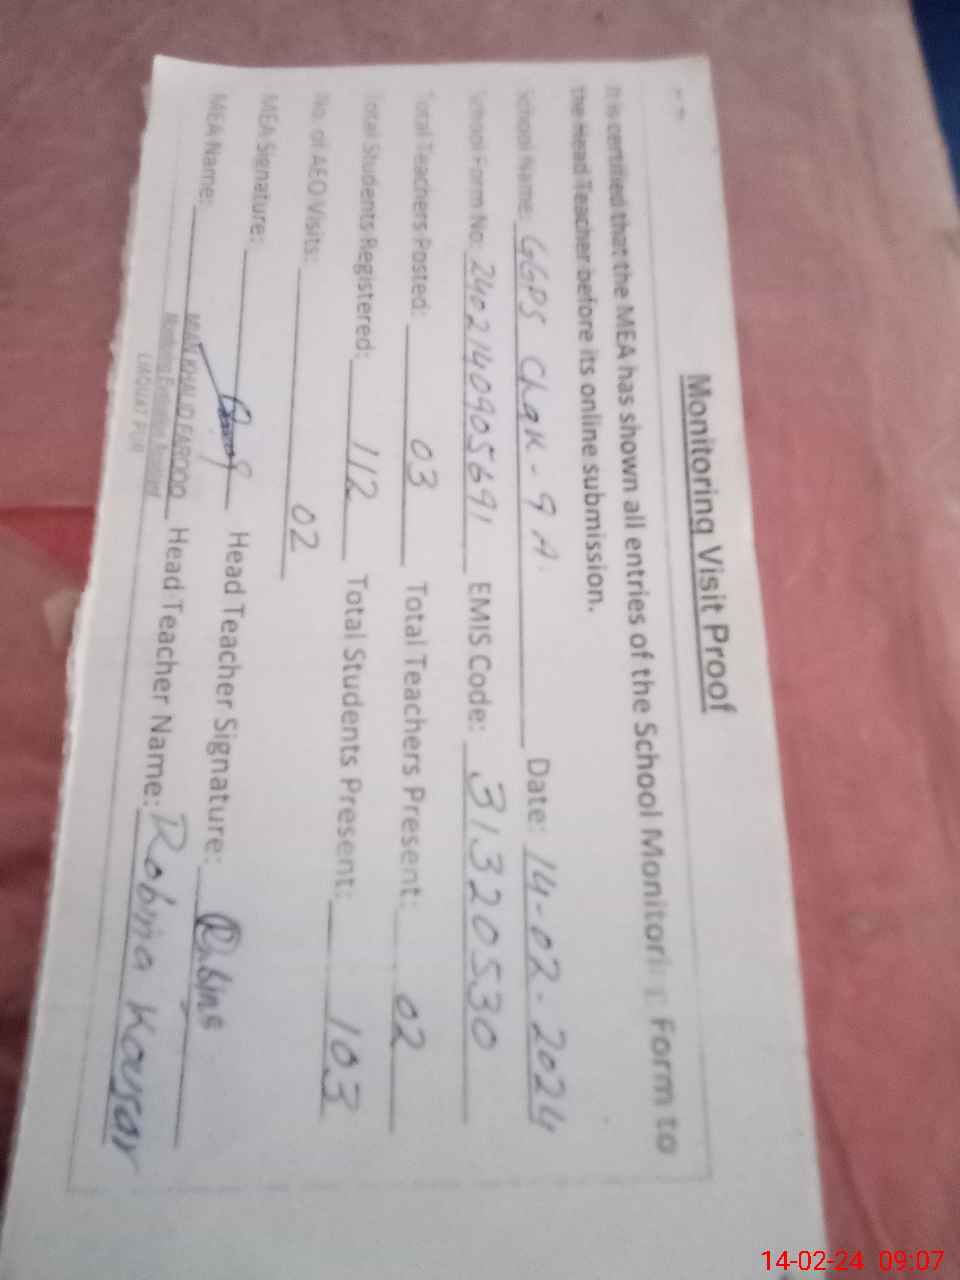 Monitoring Visit Proof
It is certified that the MEA has shown all entries of the School Monitoring Form to
the Head Teacher before its online submission.
School Name: GGPS Chak - 9 A. Date: 14-02-2024
School Form No: 2402140905691 EMIS Code: 31320530
Total Teachers Posted: 03 Total Teachers Present: 02
Total Students Registered: 112 Total Students Present: 103
No. of AEO Visits: 02
MEA Signature: Head Teacher Signature: Robina
MEA Name: MIAN KHALID FAROOQ Head Teacher Name: Robina Kousar
Monitoring Evaluation Assistant
LIAQUAT PUR
14-02-24 09:07